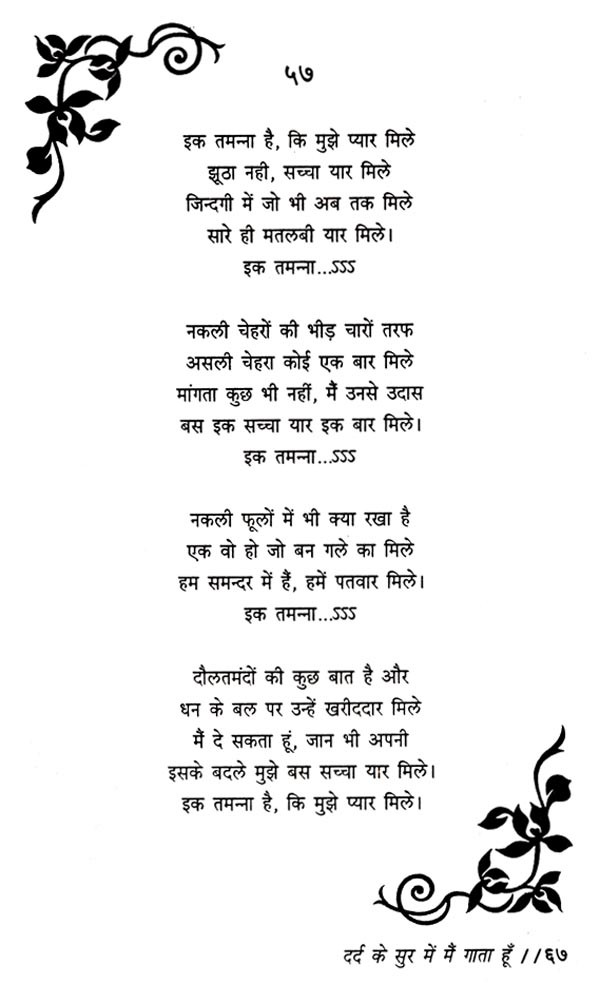 ५७
इक तमन्ना है, कि मुझे प्यार मिले
झूठा नही, सच्चा यार मिले
जिन्दगी में जो भी अब तक मिले
सारे ही मतलबी यार मिले।
इक तमन्ना...ऽऽऽ
नकली चेहरों की भीड़ चारों तरफ
असली चेहरा कोई एक बार मिले
मांगता कुछ भी नहीं, मैं उनसे उदास
बस इक सच्चा यार इक बार मिले।
इक तमन्ना...ऽऽऽ
नकली फूलों में भी क्या रखा है
एक वो हो जो बन गले का मिले
हम समन्दर में हैं, हमें पतवार मिले।
इक तमन्ना...ऽऽऽ
दौलतमंदों की कुछ बात है और
धन के बल पर उन्हें खरीददार मिले
मैं दे सकता हूं, जान भी अपनी
इसके बदले मुझे बस सच्चा यार मिले।
इक तमन्ना है, कि मुझे प्यार मिले।
दर्द के सुर में मैं गाता हूँ //६७